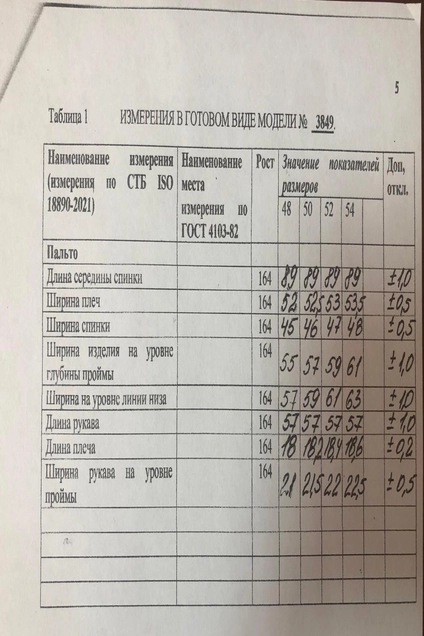 5
Таблица 1 ИЗМЕРЕНИЯ В ГОТОВОМ ВИДЕ МОДЕЛИ № 3849.
Наименование измерения (измерения по СТБ ISO 18890-2021) Наименование места измерения по ГОСТ 4103-82 Рост Значение показателей размеров Доп. откл.
48 50 52 54
Пальто
Длина середины спинки 164 89 89 89 89 ±1,0
Ширина плеч 164 52 52,5 53 53,5 ±0,5
Ширина спинки 164 45 46 47 48 ±0,5
Ширина изделия на уровне глубины проймы 164 55 57 59 61 ±1,0
Ширина на уровне линии низа 164 57 59 61 63 ±1,0
Длина рукава 164 57 57 57 57 ±1,0
Длина плеча 164 18 18,2 18,4 18,6 ±0,2
Ширина рукава на уровне проймы 164 21 21,5 22 22,5 ±0,5